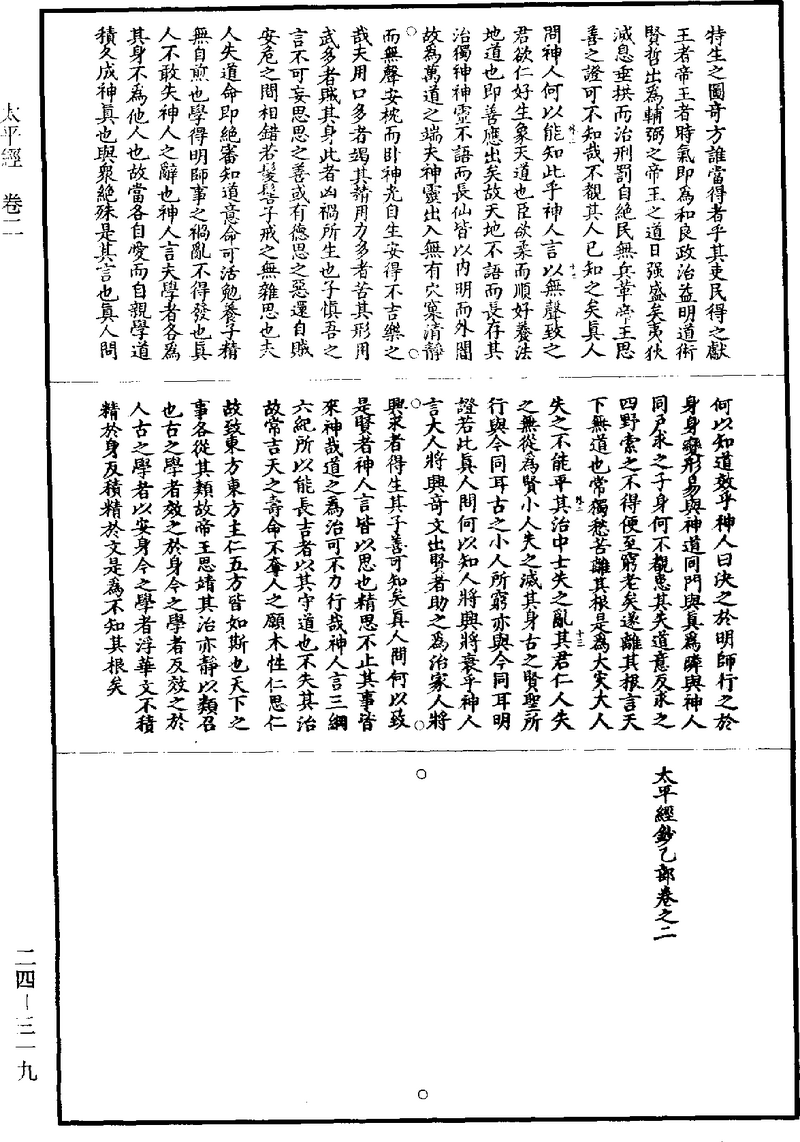 特生之圖奇方誰當得者乎其吏民得之獻
王者帝王者時氣即為和良政治益明道術
賢哲出為輔弼之帝王之道日强盛矣夷狄
減息垂拱而治刑罰自絕民無兵革帝王思
善之證可不知哉不覩其人已知之矣真人
問神人何以能知此乎神人言以無聲致之
君欲仁好生象天道也臣欲柔而順好養法
地道也即善應出矣故天地不語而長存其
治獨神神靈不語而長仙皆以内明而外闇
故為萬道之端夫神靈出入無有穴窠清靜
而無聲安枕而卧神光自生安得不吉樂之
哉夫用口多者竭其精用力多者苦其形用
武多者賊其身此者凶禍所生也子慎吾之
言不可妄思思之善或有德思之惡還自賊
安危之間相錯若髮髻子戒之無雜思也夫
人失道命即絕審知道意命可活勉養子精
無自煎也學得明師事之禍亂不得發也真
人不敢失神人之辭也神人言夫學者各為
其身不為他人也故當各自愛而自親學道
積久成神真也與衆絕殊是其言也真人問
何以知道效乎神人曰決之於明師行之於
身身變形易與神道同門與真為隣與神人
同戶求之子身何不覩患其失道意反求之
四野索之不得便至窮老矣遂離其根言天
下無道也常獨愁苦離其根是為大灾大人
失之不能平其治中士失之亂其君仁人失
之無從為賢小人失之滅其身古之賢聖所
行與今同耳古之小人所窮亦與今同耳明
證若此真人問何以知人將興將衰乎神人
言大人將興奇文出賢者助之為治家人將
興求者得生其子善可知矣真人問何以致
是賢者神人言皆以思也精思不止其事皆
來神哉道之為治可不力行哉神人言三綱
六紀所以能長吉者以其守道也不失其治
故常吉天之壽命不奪人之願木性仁思仁
故致東方東方主仁五方皆如斯也天下之
事各從其類故帝王思靖其治亦靜以類召
也古之學者效之於身今之學者反效之於
人古之學者以安身今之學者浮華文不積
精於身反積精於文是為不知其根矣
太平經鈔乙部卷之二
太平經 卷二
二四－三一九